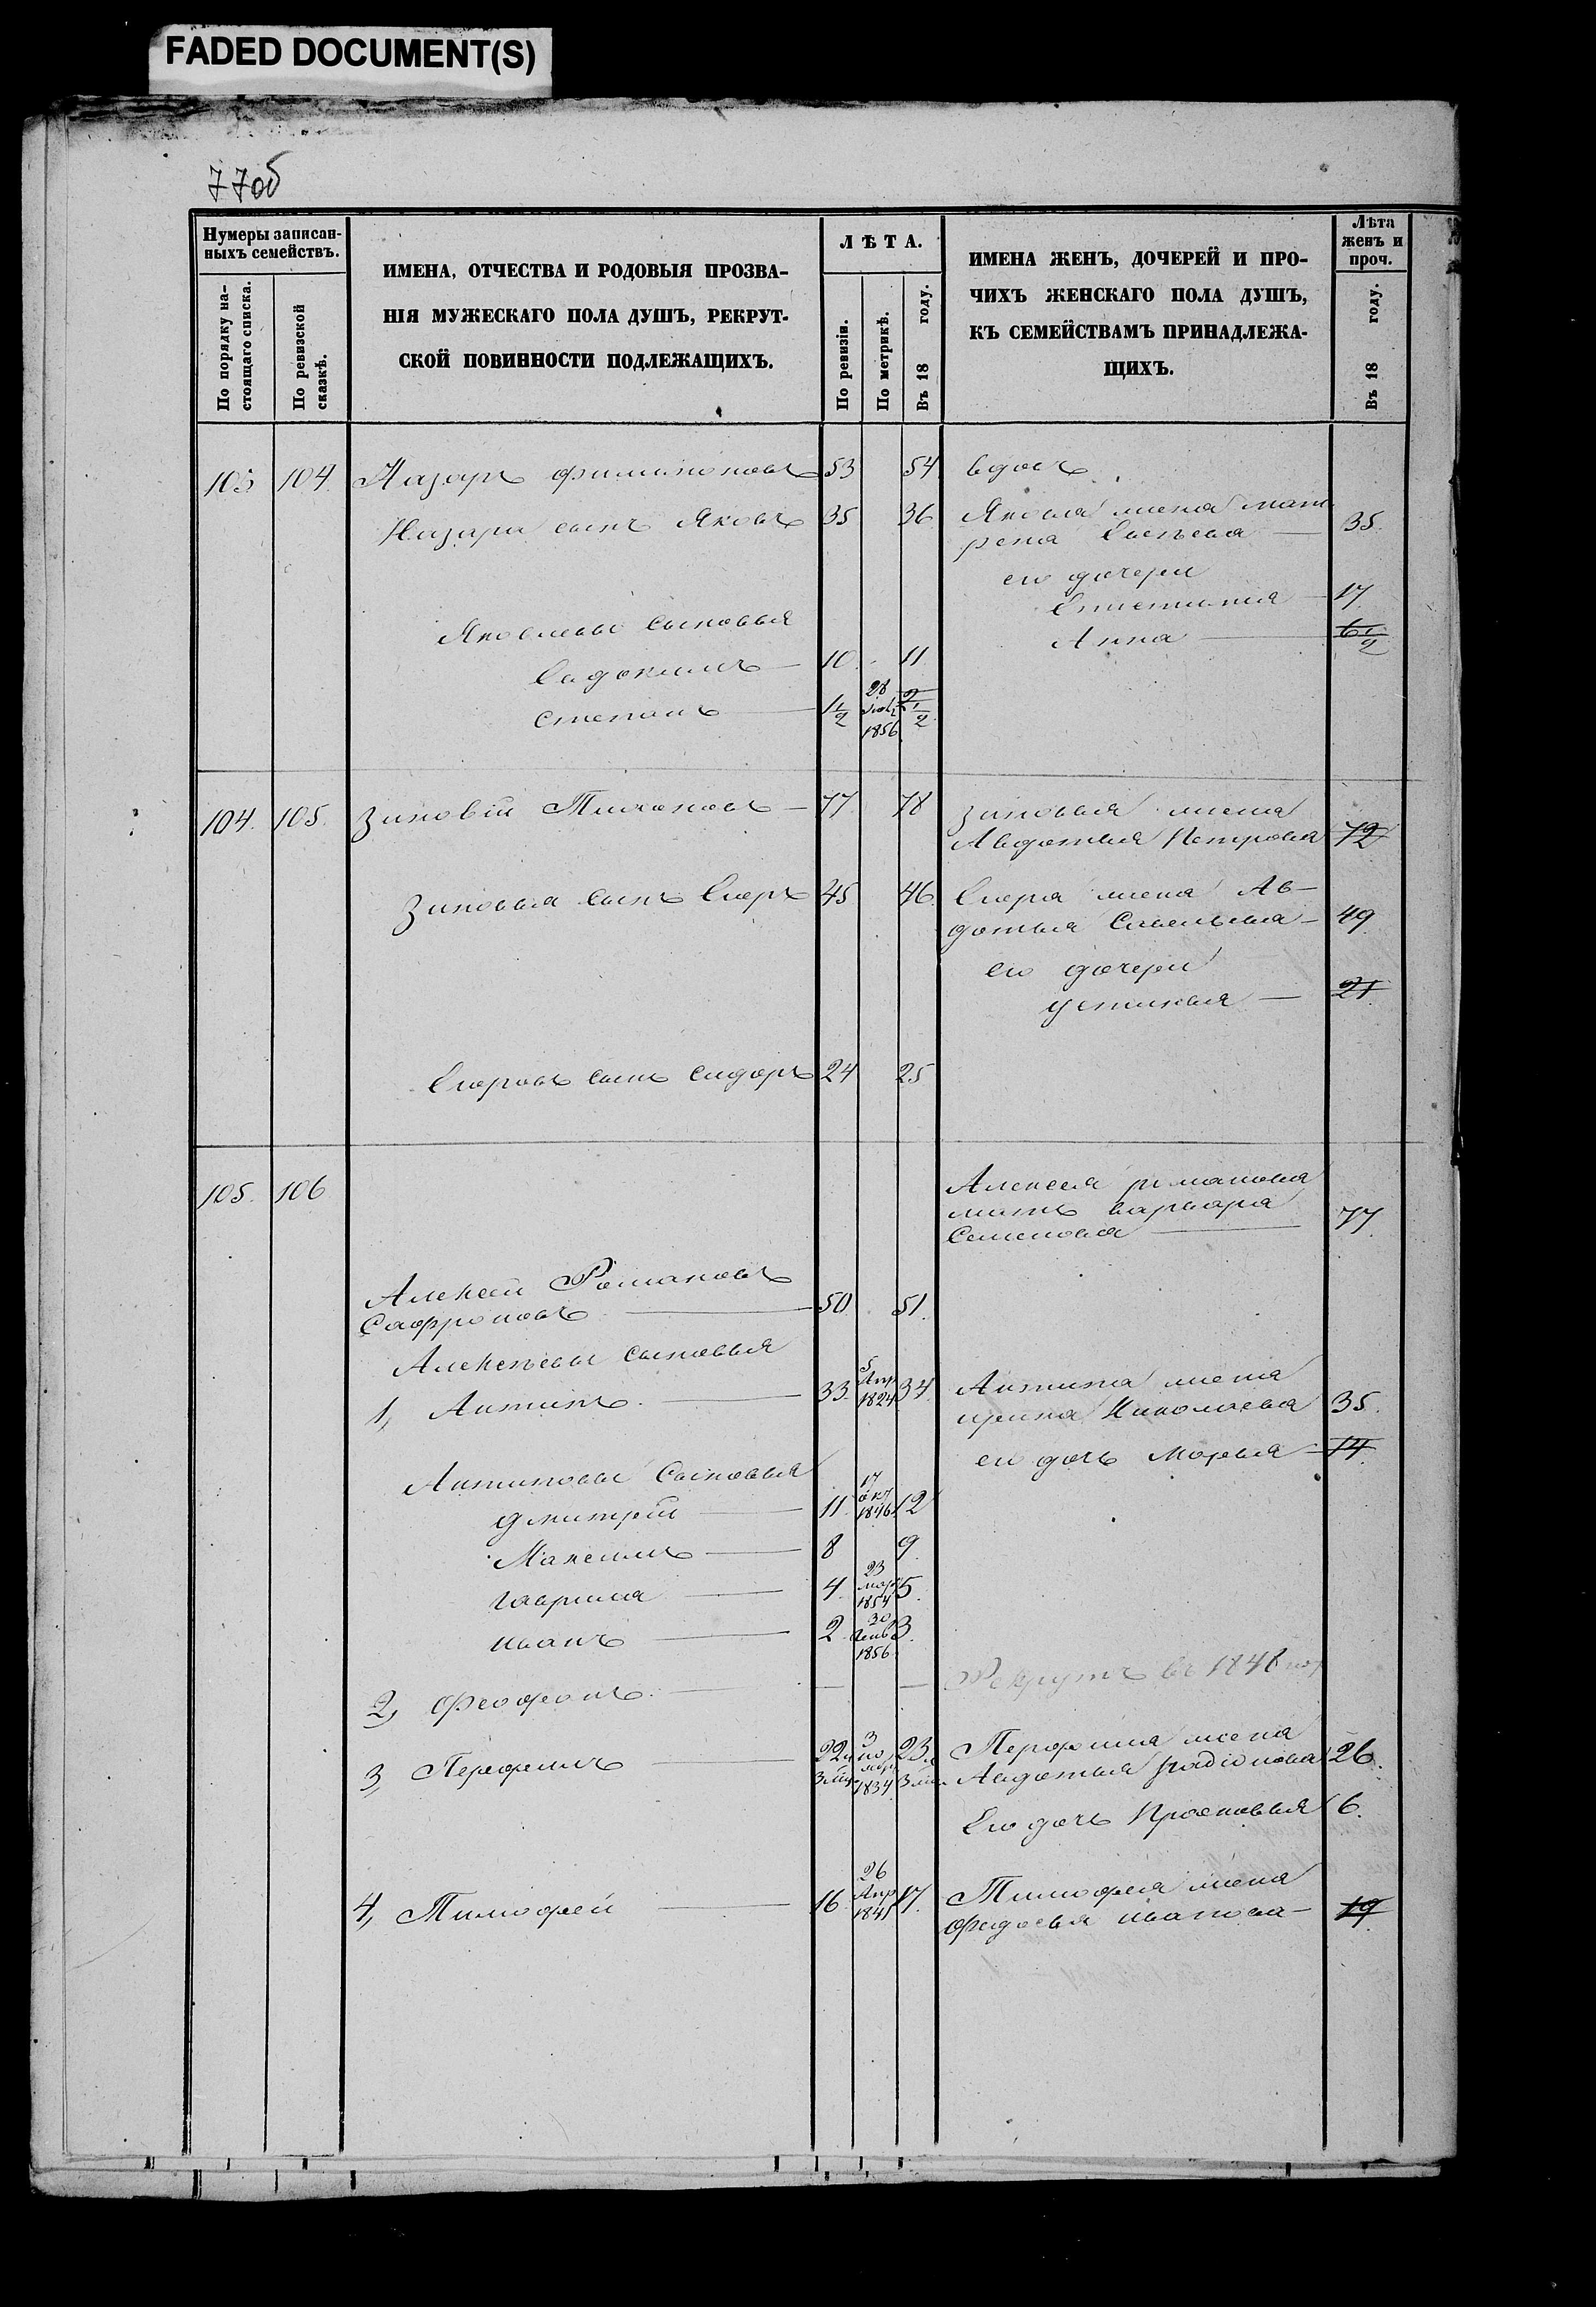 FADED DOCUMENT(S)
77об
Нумеры записан-
ныхъ семействъ.
По порядку на-
стоящаго списка.
По ревизской
сказкѣ.
ИМЕНА, ОТЧЕСТВА И РОДОВЫЯ ПРОЗВА-
НІЯ МУЖЕСКАГО ПОЛА ДУШЪ, РЕКРУТ-
СКОЙ ПОВИННОСТИ ПОДЛЕЖАЩИХЪ.
ЛѢТА.
По ревизіи.
По метрикѣ.
Въ 18 году.
ИМЕНА ЖЕНЪ, ДОЧЕРЕЙ И ПРО-
ЧИХЪ ЖЕНСКАГО ПОЛА ДУШЪ,
КЪ СЕМЕЙСТВАМЪ ПРИНАДЛЕЖА-
ЩИХЪ.
Лѣта
женъ и
проч.
Въ 18 году.
103 104. Назаръ филимоновъ 53 54 вдовъ
Назара сынъ Яковъ 35 36 Якова жена мат
рена Евсѣева 35.
его дочери
17.
Яковлевы сыновья
Анна 6 1/2
Евдокимъ 10. 11.
Степанъ 1 1/2 28 1856 2 1/2
104. 105. Зиновій Тихоновъ 77 78 Зиновья жена
Авдотья Петрова 72
Зиновья сынъ Егоръ 45 46. Егора жена Ав-
дотья Савельева 49.
его дочери
устинья 21.
Егоровъ сынъ сидоръ 24 25
105. 106 Алексея романова
мать варвара
Семенова 77.
Алексей Романовъ
Сафроновъ 50. 51.
Алексѣевы сыновья
1, Антипъ 33. 5 Апр 1824 34. Антипа жена
ирина Николаева 35.
его дочь Марья 14.
Антиповы Сыновья
дмитрій 11. 17 окт 1846. 12
Максимъ 8 9.
гаврила 4. 23 мар 1854 5.
иванъ 2. 30 1856. 3.
2, Рекрутъ въ 1848 год
3, Перфилъ 22. 3 мѣс 3 ноября 1834 23. 3 мѣс Перфила жена
Авдотья радіонова 26.
Его дочь Прасковья 6.
4, Тимофей 16. 26 Апр 1841 17. Тимофея жена
федосья иванова 19.